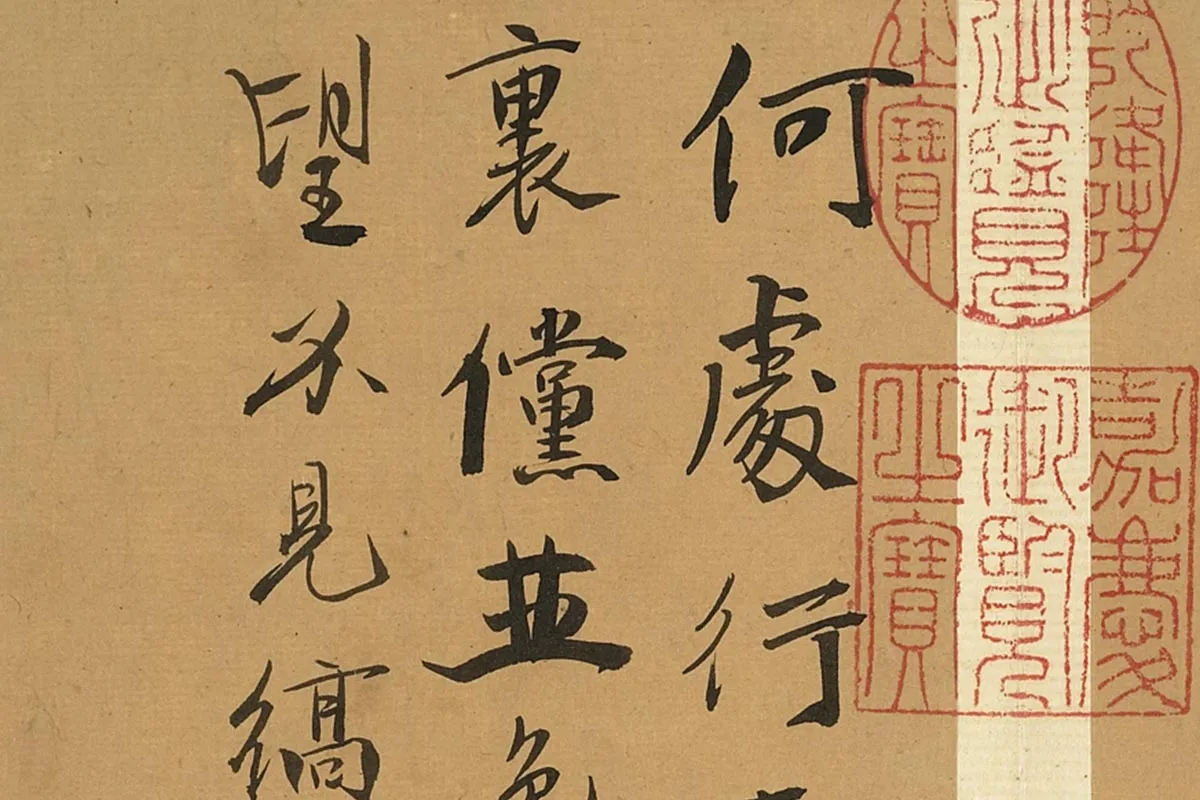 乾隆御覽之寶
嘉慶御覽之寶
何處行
裏儻並
望不見縞